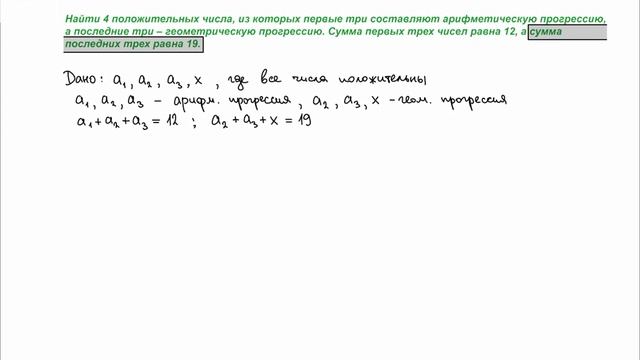 Найти 4 положительных числа, из которых первые три составляют арифметическую прогрессию,
а последние три – геометрическую прогрессию. Сумма первых трех чисел равна 12, а сумма
последних трех равна 19.
Дано: a₁, a₂, a₃, x, где все числа положительны
a₁, a₂, a₃ – арифм. прогрессия, a₂, a₃, x – геом. прогрессия
a₁ + a₂ + a₃ = 12 ; a₂ + a₃ + x = 19